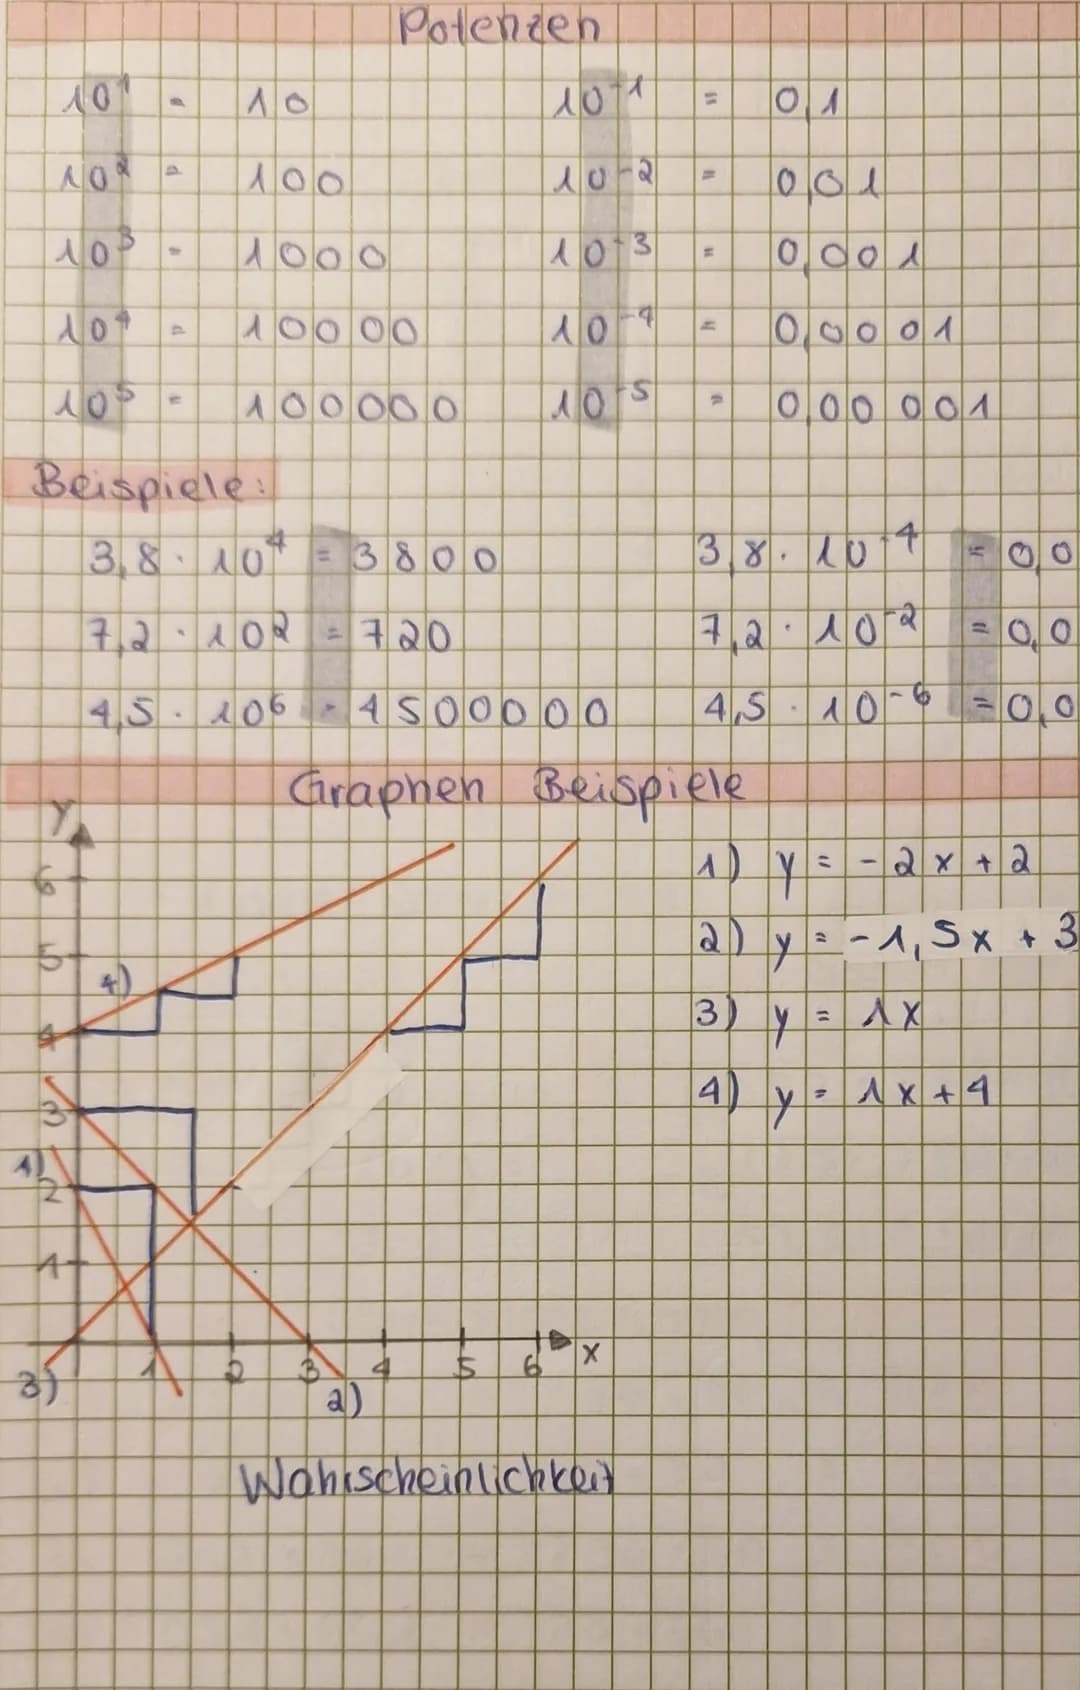 Potenzen
10¹ = 10 10⁻¹ = 0,1
10² = 100 10⁻² = 0,01
10³ = 1000 10⁻³ = 0,001
10⁴ = 10000 10⁻⁴ = 0,0001
10⁵ = 100000 10⁻⁵ = 0,00001
Beispiele:
3,8 · 10⁴ = 3800 3,8 · 10⁻⁴ = 0,0
7,2 · 10² = 720 7,2 · 10⁻² = 0,0
4,5 · 10⁶ = 4500000 4,5 · 10⁻⁶ = 0,0
Graphen Beispiele
y
6
5
4)
4
3
1)
2
1
1 2 3 4 5 6 x
3) 2)
1) y = -2x + 2
2) y = -1,5x + 3
3) y = 1x
4) y = 1x + 4
Wahrscheinlichkeit